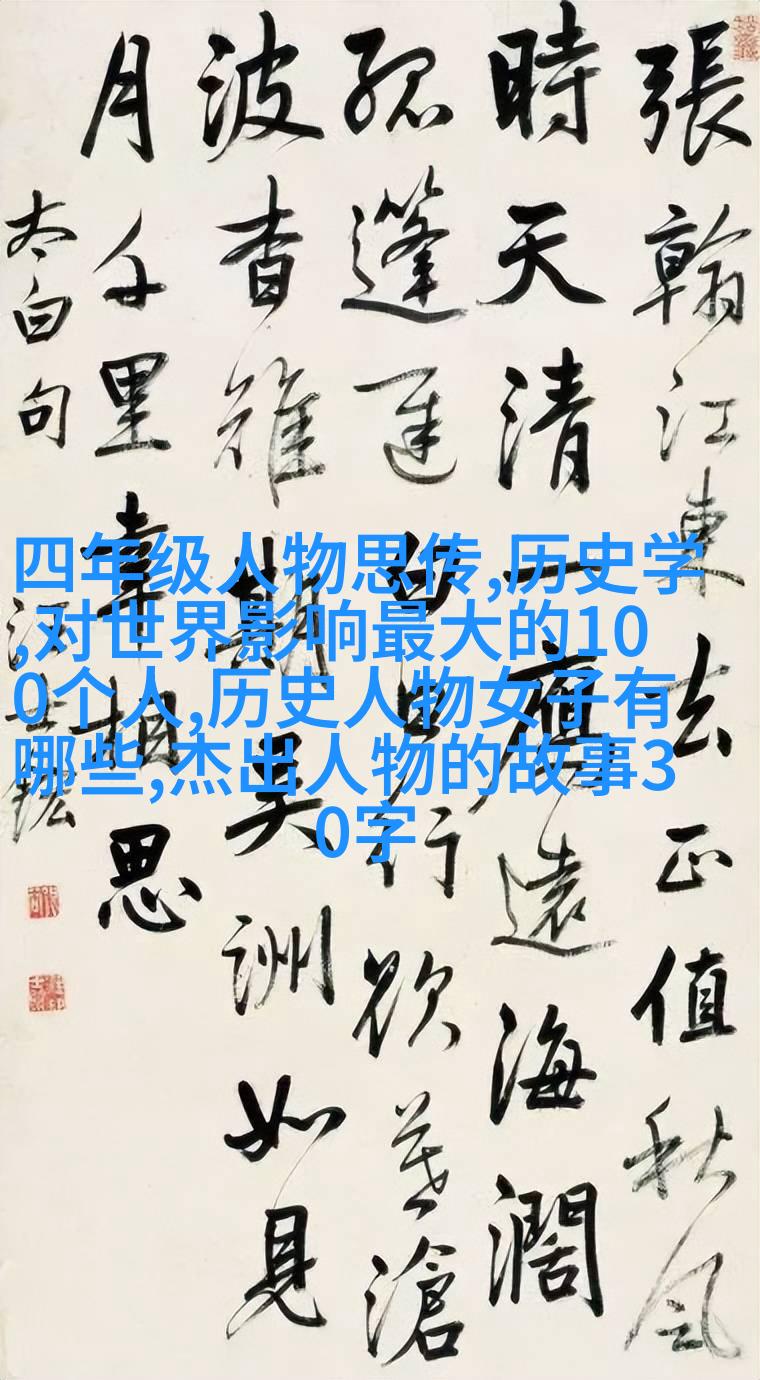 張翰江東去正值秋風
時天清一鴈遠海闊
孤篷遲白日行欲暮滄
波杳難期吳洲如見
月千里幸相思
太白句 汪士鋐
四年级人物思传,历史学
,对世界影响最大的10
0个人,历史人物女子有
哪些,杰出人物的故事3
0字